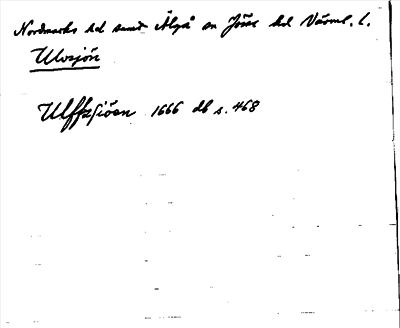 Nordmarks hd samt Älgå sn Jösse hd Värml. l.
Ulvsjön
Ulffzsiöen 1666 db s. 468